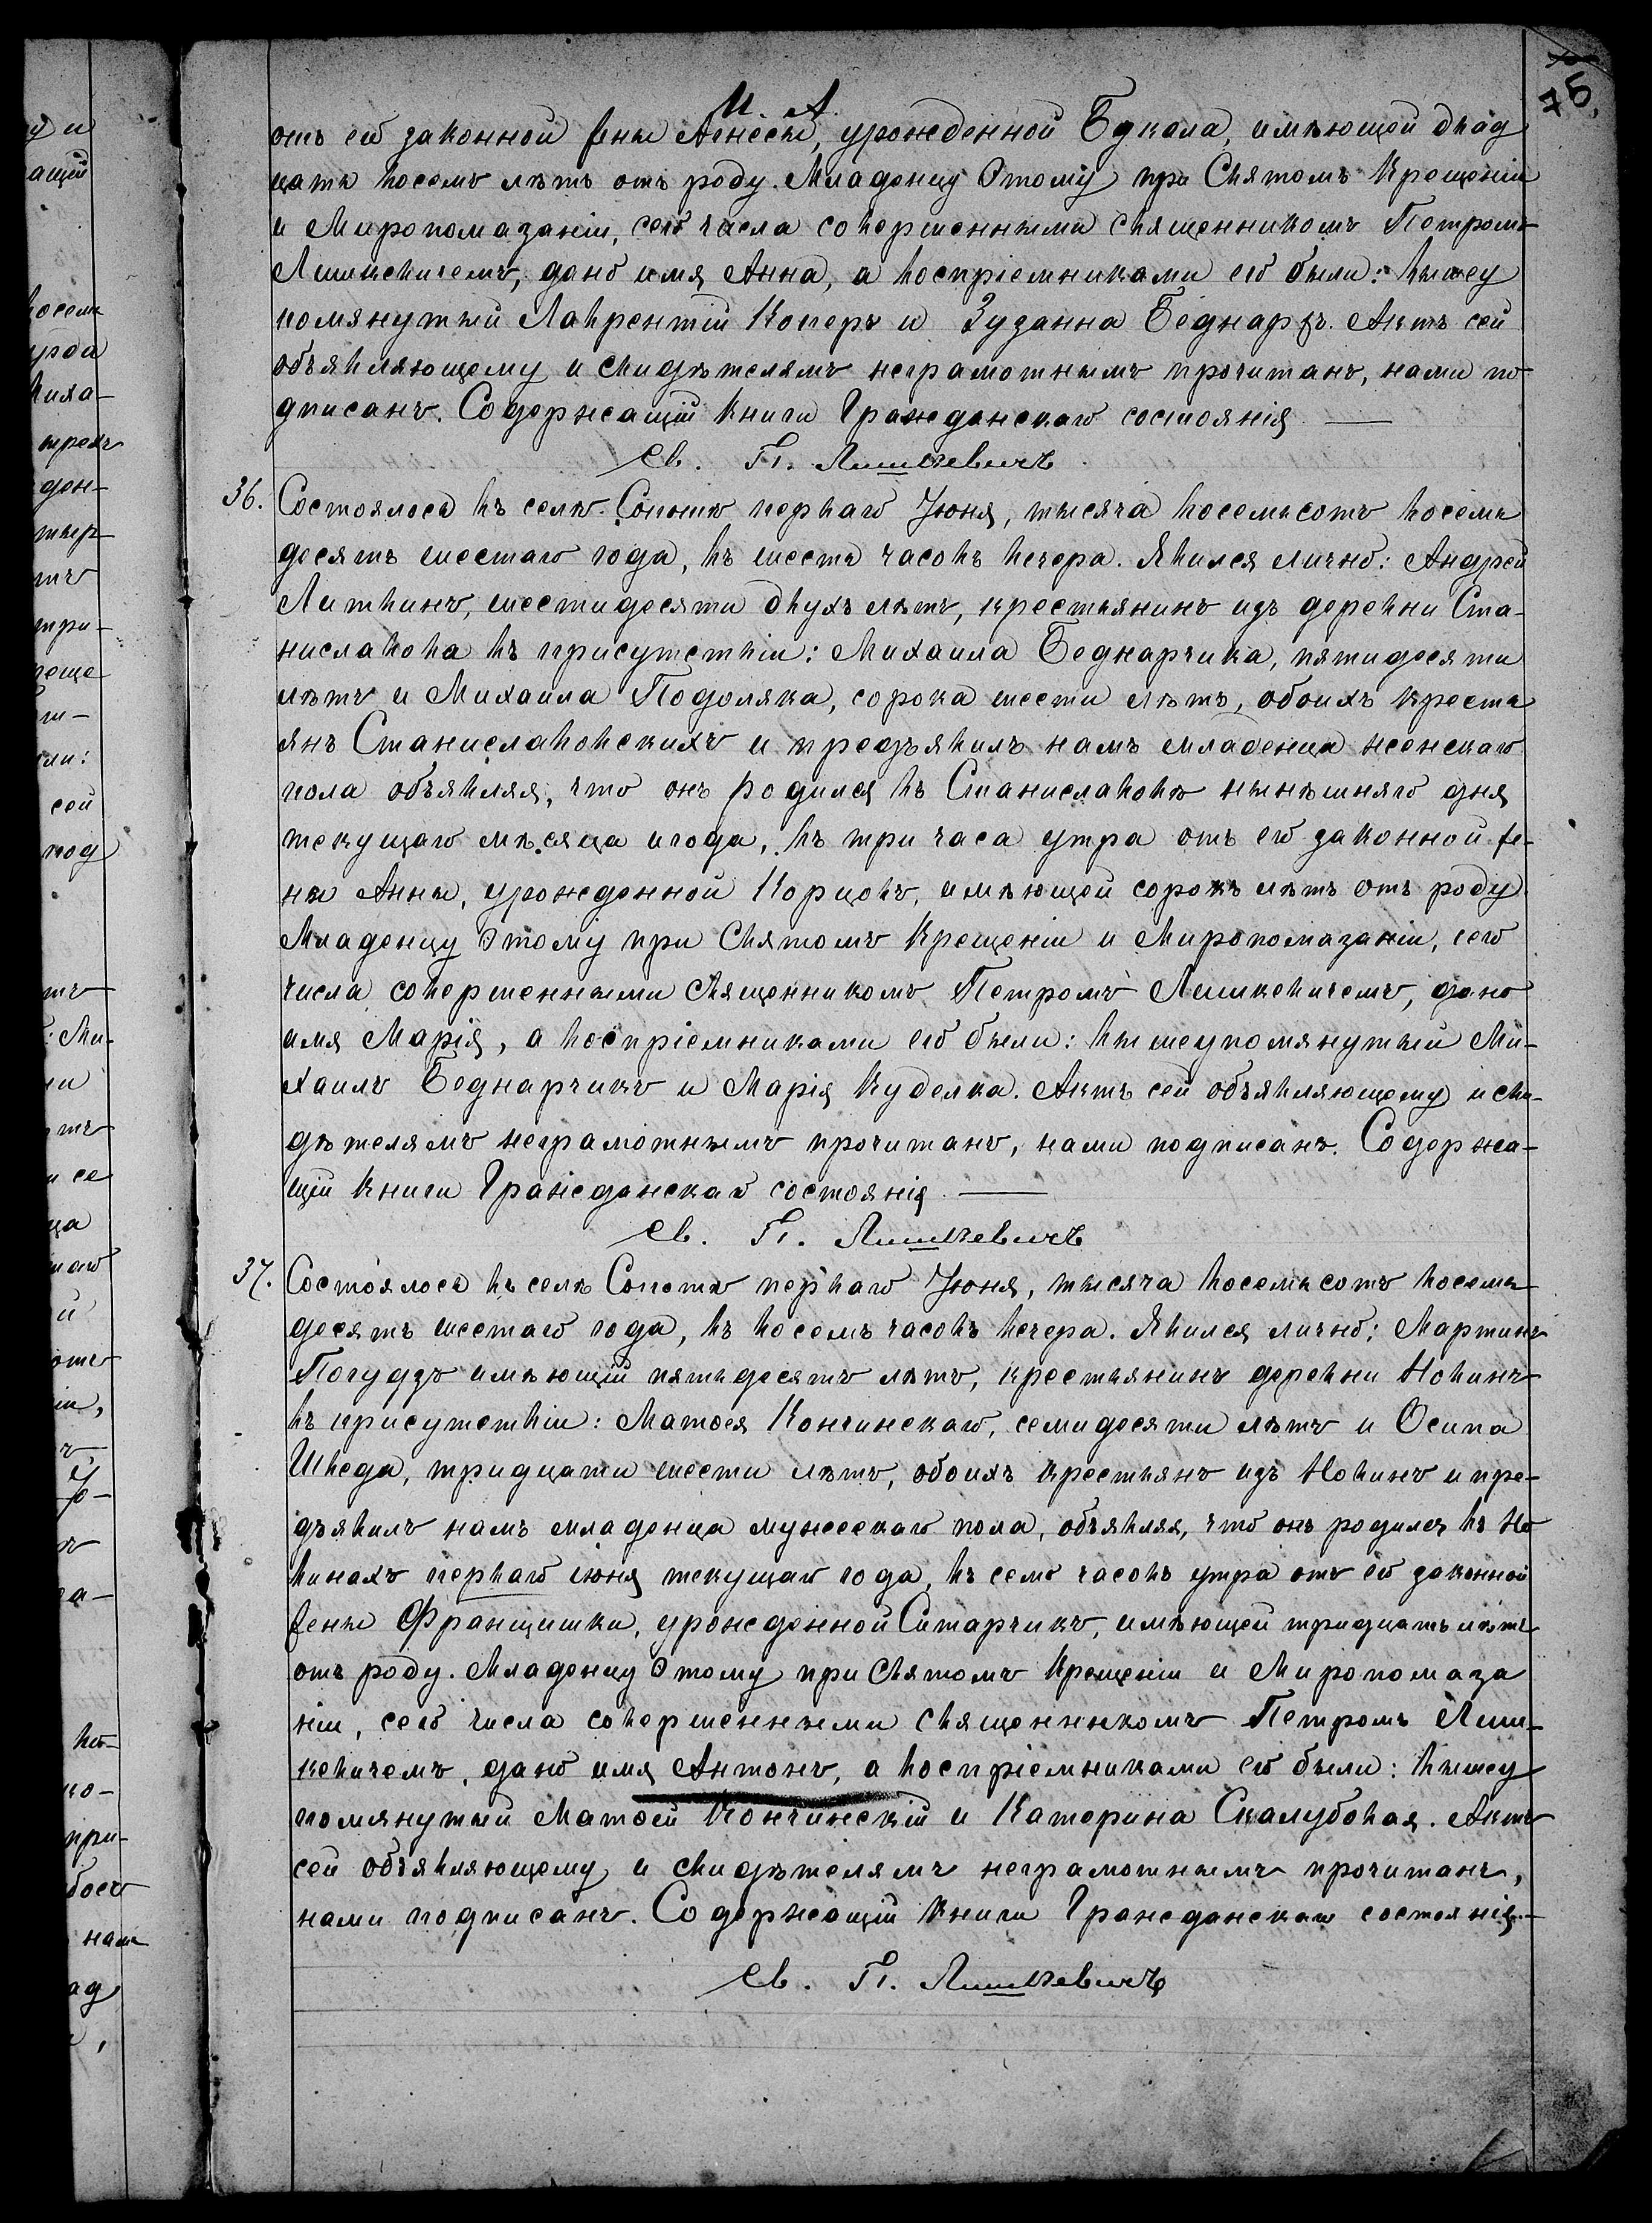 75.
И. А.
отъ его законной жены Агнесы, урожденной Букала, имѣющей двад
цать восемь лѣтъ отъ роду. Младенцу Этому при Святомъ Крещеніи
и Миропомазаніи, сего числа совершенными священникомъ Петромъ
Лишкевичемъ, дано имя Анна, а воспріемниками его были: выше у
помянутый Лаврентій Коперъ и Зузанна Беднаржъ. Актъ сей
объявляющему и свидѣтелямъ неграмотнымъ прочитанъ, нами по
дписанъ. Содержащій книги Гражданскаго состоянія. —
Св. П. Лишкевичъ
36. Состоялось въ селѣ Сопотѣ перваго Іюня, тысяча восемьсотъ восемь
десятъ шестаго года, въ шесть часовъ вечера. Явился лично: Андрей
Литвинъ, шестидесяти двухъ лѣтъ, крестьянинъ изъ деревни Ста-
ниславова въ присутствіи: Михаила Беднарчика, пятидесяти
лѣтъ и Михаила Подоляка, сорока шести лѣтъ, обоихъ кресть
янъ Станиславовскихъ и предъявилъ намъ младенца женскаго
пола объявляя, что онъ родился въ Станиславовѣ нынѣшняго дня
текущаго мѣсяца и года, въ три часа утра отъ его законной же-
ны Анны, урожденной Корцовъ, имѣющей сорокъ лѣтъ отъ роду.
Младенцу Этому при Святомъ Крещеніи и Миропомазаніи, сего
числа совершенными Священникомъ Петромъ Лишкевичемъ, дано
имя Марія, а воспріемниками его были: вышеупомянутый Ми-
хаилъ Беднарчикъ и Марія Куделка. Актъ сей объявляющему и сви-
дѣтелямъ неграмотнымъ прочитанъ, нами подписанъ. Содержа-
щій книги Гражданскаго состоянія. —
Св. П. Лишкевичъ
37. Состоялось въ селѣ Сопотѣ перваго Іюня, тысяча восемьсотъ восемь
десятъ шестаго года, въ восемъ часовъ вечера. Явился лично: Мартинъ
Погудзъ имѣющій пятьдесятъ лѣтъ, крестьянинъ деревни Новинъ
въ присутствіи: Матѳея Кончинскаго, семидесяти лѣтъ и Осипа
Шведа, тридцати шести лѣтъ, обоихъ крестьянъ изъ Новинъ и пре-
дъявилъ намъ младенца мужескаго пола, объявляя, что онъ родился въ Но
винахъ перваго іюня текущаго года, въ семь часовъ утра отъ его законной
жены Францишки, урожденной Ситарчикъ, имѣющей тридцать лѣтъ
отъ роду. Младенцу Этому при Святомъ Крещеніи и Миропомаза
ніи, сего числа совершенными священникомъ Петромъ Лиш-
кевичемъ, дано имя Антонъ, а воспріемниками его были: выше у
помянутый Матѳей Кончинскій и Катерина Скалубовая. Актъ
сей объявляющему и свидѣтелямъ неграмотнымъ прочитанъ,
нами подписанъ. Содержащій книги Гражданскаго состоянія. —
Св. П. Лишкевичъ